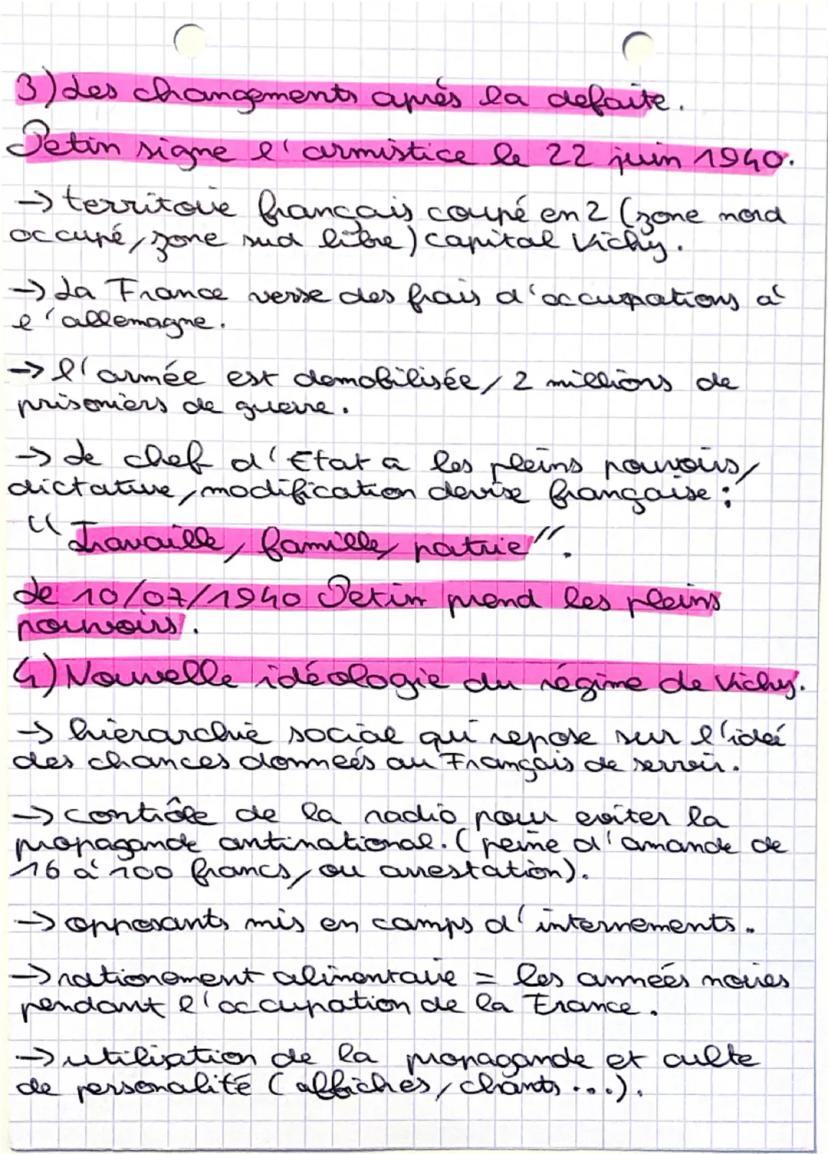 3) Les changements après la defaite.
Petin signe l'armistice le 22 juin 1940.
→ territoire français coupé en 2 (zone nord
occupé, zone sud libre) capital Vichy.
→ La France verse des frais d'occupations à
l'allemagne.
→ l'armée est demobilisée, 2 millions de
prisoniers de guerre.
→ Le chef d'Etat a les pleins pouvoirs,
dictature, modification devise française :
"Travaille, famille, patrie".
Le 10/07/1940 Petin prend les pleins
pouvoirs.
4) Nouvelle idéologie du régime de Vichy.
→ hiérarchie social qui repose sur l'ideé
des chances donneés au Français de servir.
→ contrôle de la radio pour eviter la
propagande antinational. (peine d'amande de
16 à 100 francs, ou arrestation).
→ opposants mis en camps d'internements.
→ rationement alimentaire = les anneés noires
pendant l'occupation de la France.
→ utilisation de la propagande et culte
de personalité (affiches, chants ...).